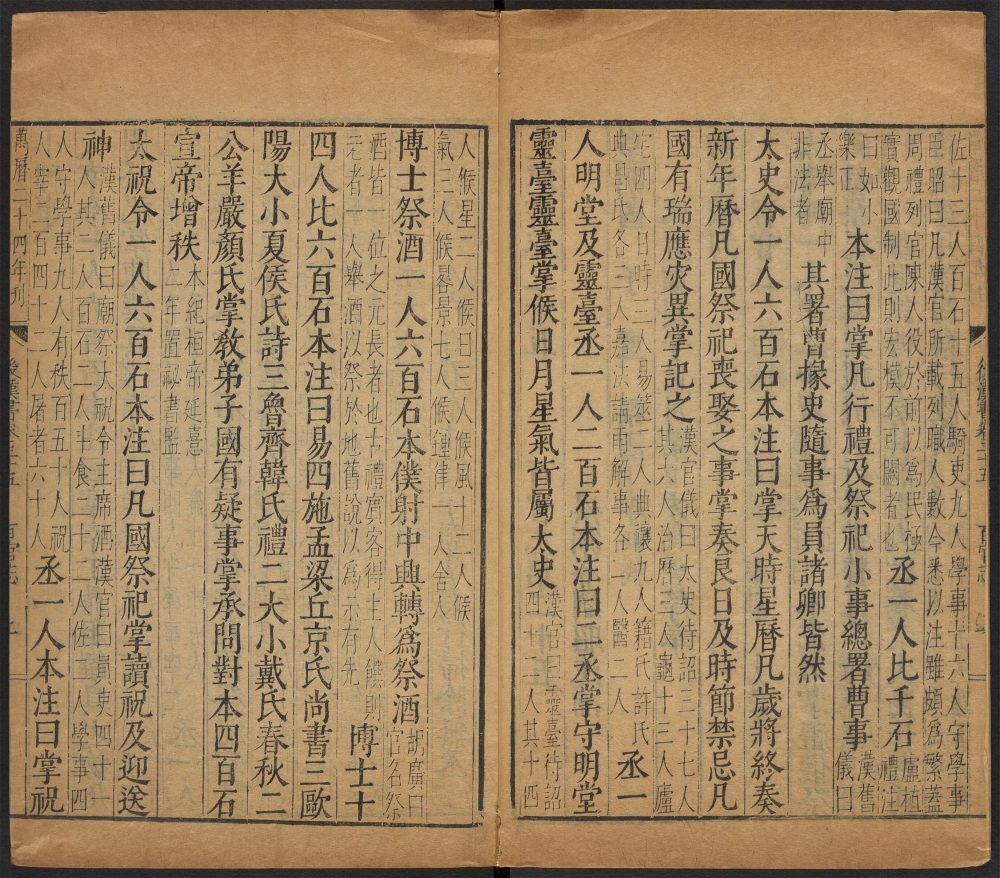 佐十三人百石十五人騎吏九人學事十六人守學事
臣昭曰凡漢官所載列職人數今悉以注雖頗爲繁蓋
周禮列官陳人役於前以爲民極
實觀國制此則宏模不可闕者也
丞一人比千石
盧植
禮注
曰如小
樂正
本注曰掌凡行禮及祭祀小事總署曹事
漢舊
儀曰
丞舉廟中
非法者
其署曹掾史隨事爲員諸卿皆然
太史令一人六百石本注曰掌天時星曆凡歲將終奏
新年曆凡國祭祀喪娶之事掌奏良日及時節禁忌凡
國有瑞應灾異掌記之
漢官儀曰太史待詔三十七人
其六人治曆三人龜十三人廬
宅四人日時三人易筮二人典禳九人籍氏許氏
典昌氏各三人嘉法請雨解事各一人醫二人
丞一
人明堂及靈臺丞一人二百石本注曰二丞掌守明堂
靈臺靈臺掌候日月星氣皆屬太史
漢官曰靈臺待詔
四十二人其十四
人候星二人候日三人候風十二人候
氣三人候晷景七人候鍾律一人舍人
博士祭酒一人六百石本僕射中興轉爲祭酒
胡廣曰
官名祭
酒皆一位之元長者也古禮賓客得主人饌則
老者一人舉酒以祭於地舊說以爲示有先
博士十
四人比六百石本注曰易四施孟梁丘京氏尚書三歐
陽大小夏侯氏詩三魯齊韓氏禮二大小戴氏春秋二
公羊嚴顏氏掌敎弟子國有疑事掌承問對本四百石
宣帝增秩
本紀桓帝延熹
二年置祕書監
太祝令一人六百石本注曰凡國祭祀掌讀祝及迎送
神
漢舊儀曰廟祭大祝令主席酒漢官曰員吏四十一
人其二人百石二人斗食二十二人佐二人學事四
人守學事九人有秩百五十人祝
人宰二百四十二人屠者六十人
丞一人本注曰掌祝
萬曆二十四年刊